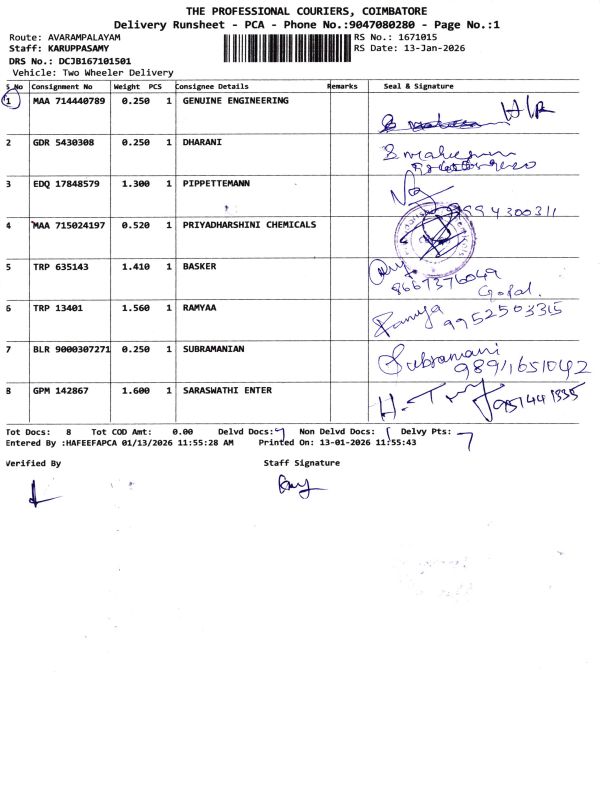 THE PROFESSIONAL COURIERS, COIMBATORE
Delivery Runsheet - PCA - Phone No.:9047080280 - Page No.:1
Route: AVARAMPALAYAM RS No.: 1671015
Staff: KARUPPASAMY RS Date: 13-Jan-2026
DRS No.: DCJB167101501
Vehicle: Two Wheeler Delivery
S No Consignment No Weight PCS Consignee Details Remarks Seal & Signature
1 MAA 714440789 0.250 1 GENUINE ENGINEERING
2 GDR 5430308 0.250 1 DHARANI
3 EDQ 17848579 1.300 1 PIPPETTEMANN
4 MAA 715024197 0.520 1 PRIYADHARSHINI CHEMICALS
5 TRP 635143 1.410 1 BASKER
8667376049
Gopal.
6 TRP 13401 1.560 1 RAMYAA Ramya 9952503315
7 BLR 9000307271 0.250 1 SUBRAMANIAN Subramani
9891651042
8 GPM 142867 1.600 1 SARASWATHI ENTER
Tot Docs: 8 Tot COD Amt: 0.00 Delvd Docs: 7 Non Delvd Docs: 1 Delvy Pts: 7
Entered By :HAFEEFAPCA 01/13/2026 11:55:28 AM Printed On: 13-01-2026 11:55:43
Verified By Staff Signature